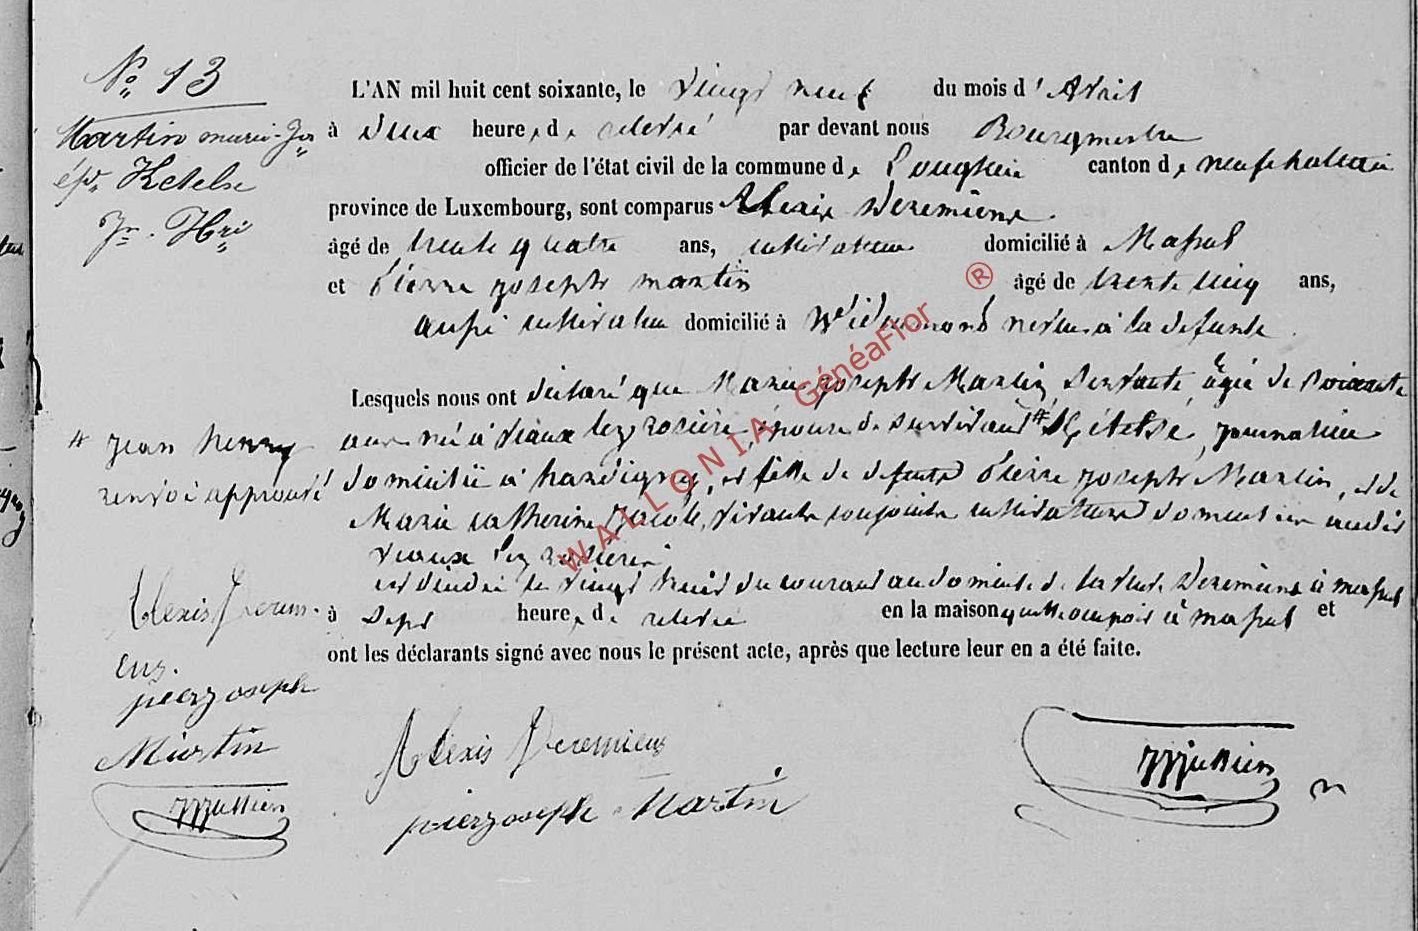 N° 13
Martin marie-Jos
ép. Ketelse
Jn. Hri
L'AN mil huit cent soixante, le vingt neuf du mois d'Avril
à deux heures de relevée par devant nous Bourgmestre
officier de l'état civil de la commune de Louftémont canton de neufchateau
province de Luxembourg, sont comparus Alexis Deremiens
âgé de trente quatre ans, cultivateur domicilié à Massul
et Pierre joseph martin âgé de trente cinq ans,
aussi cultivateur domicilié à Wideumont neveu à la defunte
Lesquels nous ont déclaré que Marie joseph Martin, servante, âgée de soixante
ans né à Vaux lez rosière, épouse de survivant # Kételse, journalier
domicilié à handigny, et fille de defunts Pierre joseph Martin, et de
Marie catherine Jacob, vivants conjoints cultivateurs domiciliés audit
vaux lez rosieres
# jean henry
renvoi approuvé
est décédée le vingt huit du courant au domicile de la dite Deremiens à massul
à sept heures de relevée en la maison qu'elle occupoit à massul et
ont les déclarants signé avec nous le présent acte, après que lecture leur en a été faite.
Alexis Derem-
ens.
pierjoseph
Martin
Alexis Deremiens
pierjoseph Martin
WALLONIA GénéaFlor ®